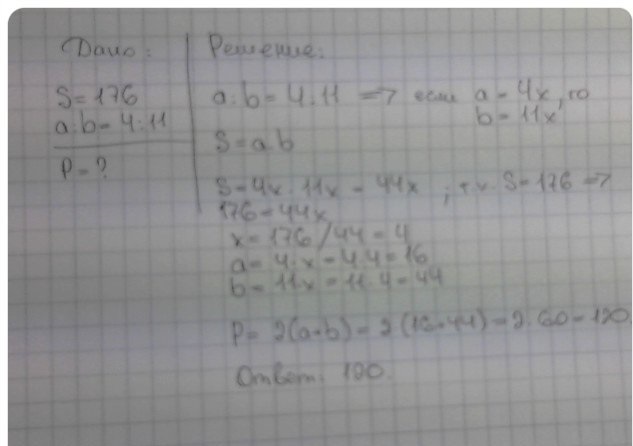 Дано:
S = 176
a:b = 4:11
P = ?
Решение:
a:b = 4:11 => если a = 4x, то
b = 11x
S = ab
S = 4x · 11x = 44x ; т.к. S = 176 =>
176 = 44x
x = 176/44 = 4
a = 4·x = 4·4 = 16
b = 11x = 11·4 = 44
P = 2(a+b) = 2(16+44) = 2·60 = 120
Ответ: 120.